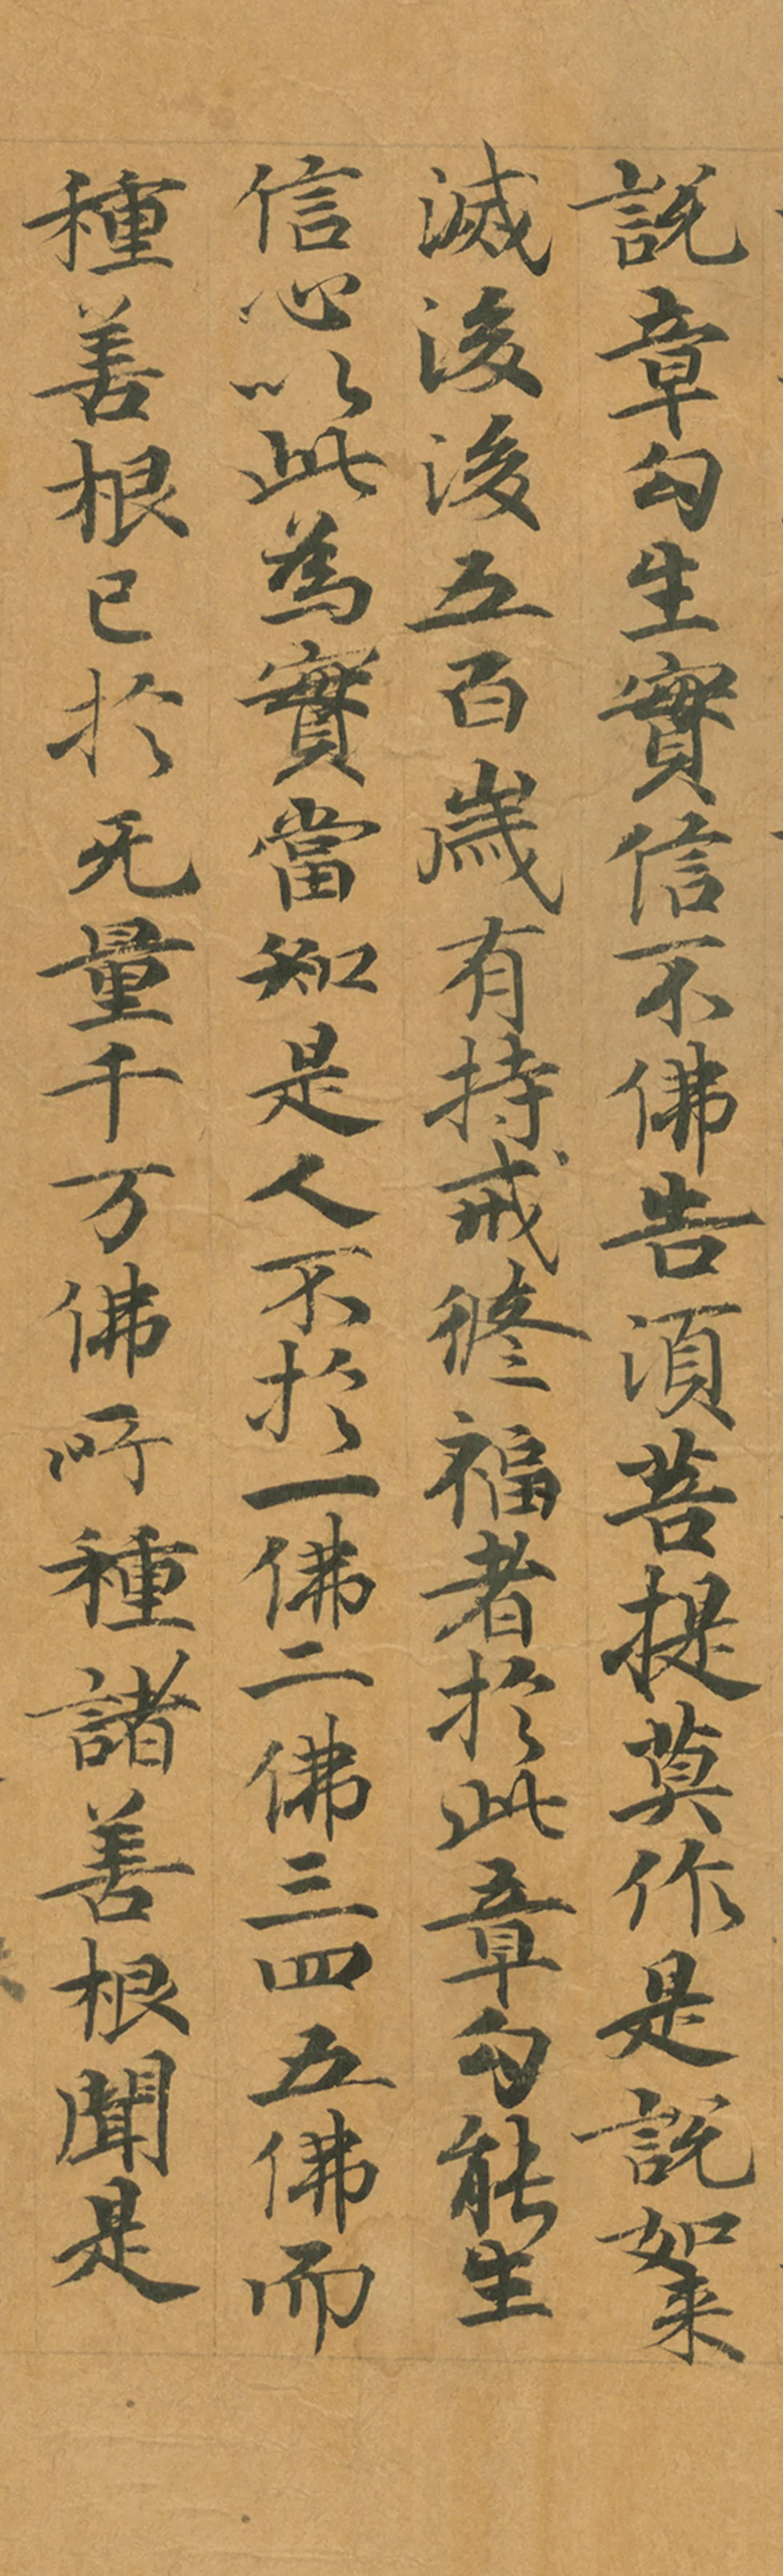 說章句生實信不佛告須菩提莫作是說如来
滅後後五百歲有持戒修福者於此章句能生
信心以此為實當知是人不於一佛二佛三四五佛而
種善根已於无量千万佛所種諸善根聞是